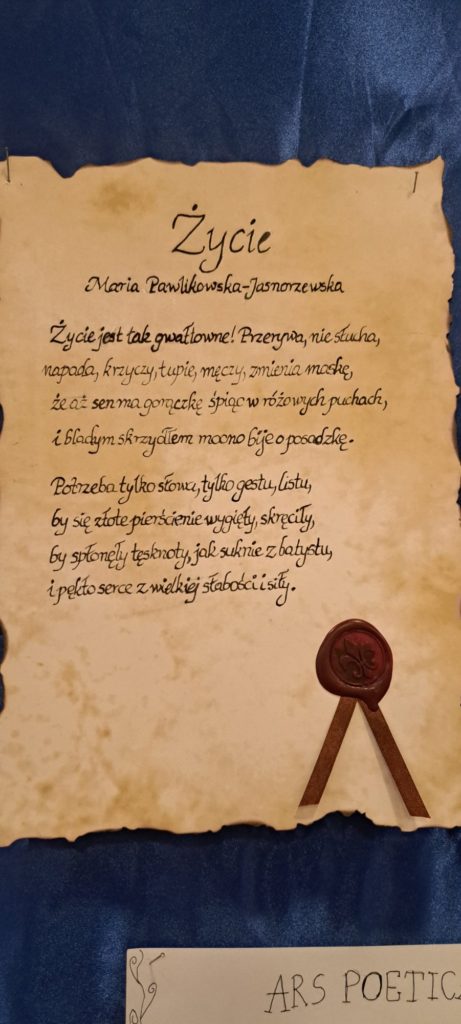 Życie
Maria Pawlikowska-Jasnorzewska
Życie jest tak gwałtowne! Przerywa, nie słucha,
napada, krzyczy, łupie, męczy, zmienia maskę,
że aż sen ma gorączkę śpiąc w różowych puchach,
i bladym skrzydłem mocno bije o posadzkę.
Potrzeba tylko słowa, tylko gestu, listu,
by się złote pierścienie wygięły, skręciły,
by spłonęły tęsknoty, jak suknie z batystu,
i pękło serce z wielkiej słabości i siły.
ARS POETICA